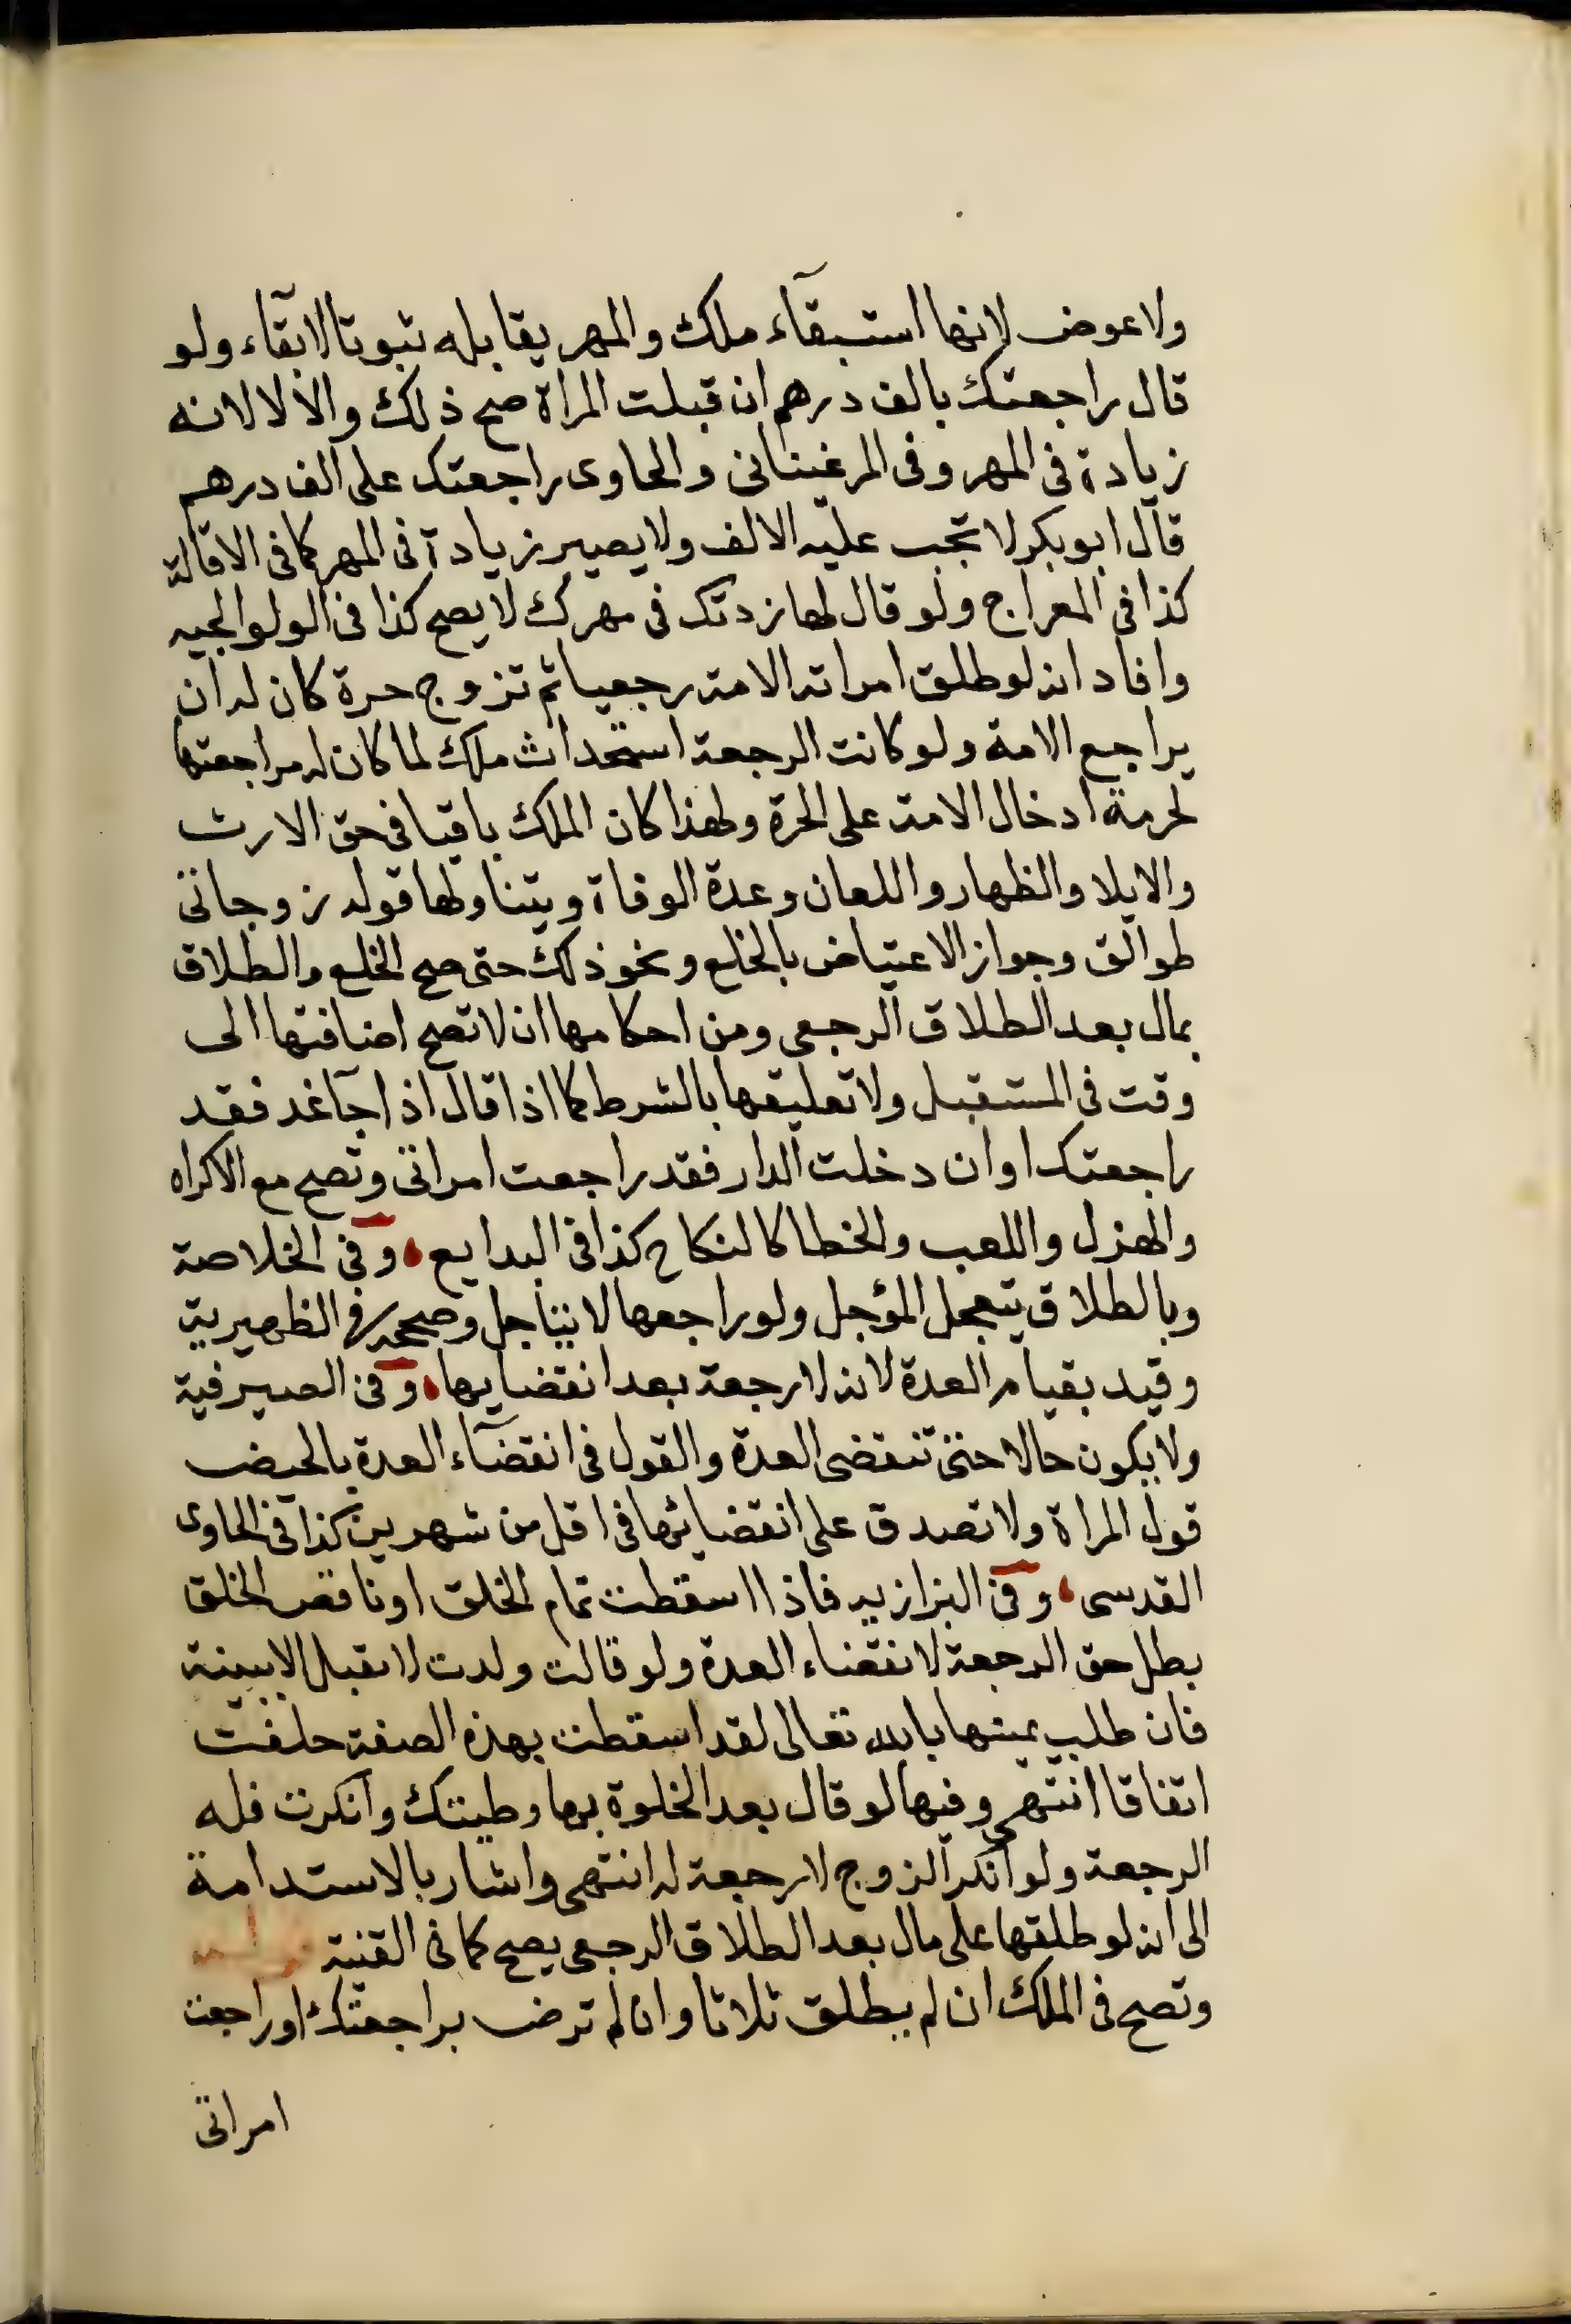 ولاعوض لانها استبقآء ملك والمهر يقابله ثبوتا لابقآء ولو
قال راجعتك بالف درهم ان قبلت المراة صح ذلك والا لا لانه
زيادة فى المهر وفى المرغينانى والحاوى راجعتك على الف درهم
قال ابوبكر لا تجب عليه الالف ولا يصير زيادة فى المهر كما فى الاقالة
كذا فى المعراج ولو قال لها زدتك فى مهرك لا يصح كذا فى الولوالجيه
وافاد انه لو طلق امراته الامة رجعيا ثم تزوج حرة كان له ان
يراجع الامة ولو كانت الرجعة استحداث ملك لما كان له مراجعتها
لحرمة ادخال الامة على الحرة ولهذا كان الملك باقيا فى حق الارث
والايلا والظهار واللعان وعدة الوفاة ويتناولها قوله زوجاتى
طوالق وجواز الاعتياض بالخلع ونحو ذلك حتى صح الخلع والطلاق
بمال بعد الطلاق الرجعى ومن احكامها ان لا تصح اضافتها الى
وقت فى المستقبل ولا تعليقها بالشرط كما اذا قال اذا جآ غد فقد
راجعتك او ان دخلت الدار فقد راجعت امراتى وتصح مع الاكراه
والهزل واللعب والخطا كالنكاح كذا فى البدايع وفى الخلاصة
وبالطلاق يتعجل المؤجل ولو راجعها لا يتاجل وصححه فى الظهيرية
وقيد بقيام العدة لانه لا رجعة بعد انقضايها وفى الصيرفية
ولا يكون حالا حتى تنقضى العدة والقول فى انقضآء العدة بالحيض
قول المراة ولا تصدق على انقضائها فى اقل من شهرين كذا فى الحاوى
القدسى وفى البزازيه فاذا اسقطت تمام الخلق او ناقص الخلق
بطل حق الرجعة لانقضاء العدة ولو قالت ولدت لا تقبل الا ببينة
فان طلب يمينها بالله تعالى لقد اسقطت بهذه الصفة حلفت
اتفاقا انتهى وفيها لو قال بعد الخلوة بها وطيتك وانكرت فله
الرجعة ولو انكر الزوج لا رجعة له انتهى واشار بالاستدامة
الى انه لو طلقها على مال بعد الطلاق الرجعى يصح كما فى القنية
وتصح فى الملك ان لم يطلق ثلاثا وان لم ترض براجعتك او راجعت
امراتى